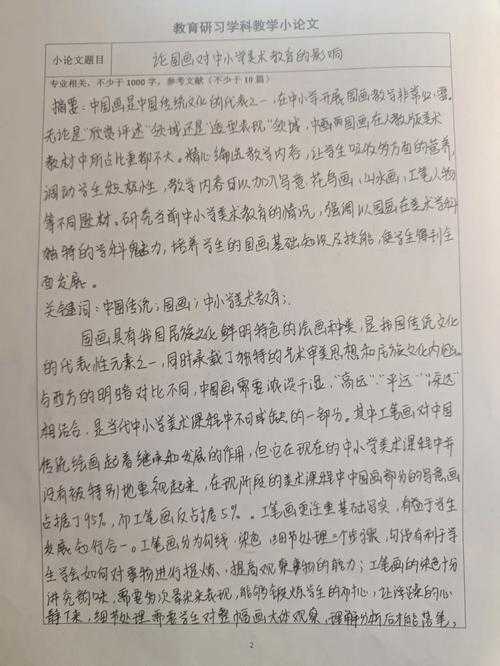 教育研习学科教学小论文
小论文题目 论国画对中小学美术教育的影响
专业相关，不少于1000字，参考文献（不少于10篇）
摘要：中国画是中国传统文化的代表之一，在中小学开展国画教学非常必要。
无论是"欣赏评述"领域还是"造型表现"领域，中国画在人教版美术
教材中所占比重都不大。精心编选教学内容，让学生吸收多方面的营养，
调动学生积极性，教学内容可以加入写意花鸟画，山水画，工笔人物
等不同题材。研究当前中小学美术教育的情况，强调以国画在美术学科
独特的学科魅力，培养学生的国画基础知识及技能，使学生得到全
面发展。
关键词：中国传统；国画；中小学美术教育；
国画具有我国民族文化鲜明特色的绘画种类，是我国传统文化
的代表性元素之一，同时承载了独特的艺术审美思想和民族文化内涵
与西方的明暗对比不同，中国画需要浓淡干湿，"高远""平远""深远"
相结合，是当代中小学美术课程中不可或缺的一部分。其中工笔画对中国
传统绘画起着继承和发展的作用，但它在现在的中小学美术课程中并
没有被特别地重视起来，在现阶段的美术课程中中国画部分的写意画
占据了95%，而工笔画仅占据5%。工笔画更注重基础写实，有益于学生
发展知行合一。工笔画分为勾线，染色，细节处理三个步骤，勾线有利于学
生学会如何对事物进行提炼、提高观察事物的能力；工笔画的染色十分
讲究韵味，需要多次晕染来表现，能够锻炼学生的耐心，让浮躁的心
静下来，细节处理需要学生对整幅画大体观察，理解分析后才能落笔，
2